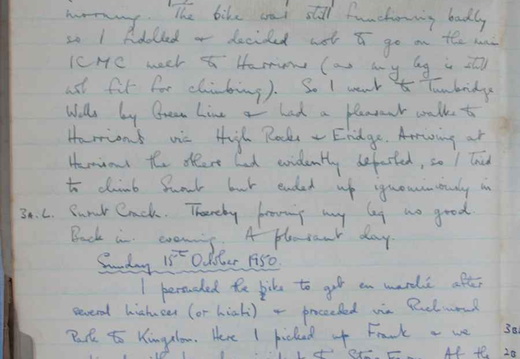 morning. The bike was still functioning badly
so I fiddled & decided not to go on the
ICMC meet to Harrisons (as my leg is still
not fit for climbing). So I went to Tunbridge
Wells by Green Line & had a pleasant walk to
Harrisons via High Rocks & Eridge. Arriving at
Harrisons the others had evidently departed, so I tried
to climb Snout but ended up ignominiously in
3A.L. Snout Crack. Thereby proving my leg no good.
Back in evening. A pleasant day.
Sunday 15th October 1950.
I persuaded the bike to get en marché after
several hiatuses (or hiati) & proceeded via Richmond
Park to Kingston. Here I picked up Frank & we
At the